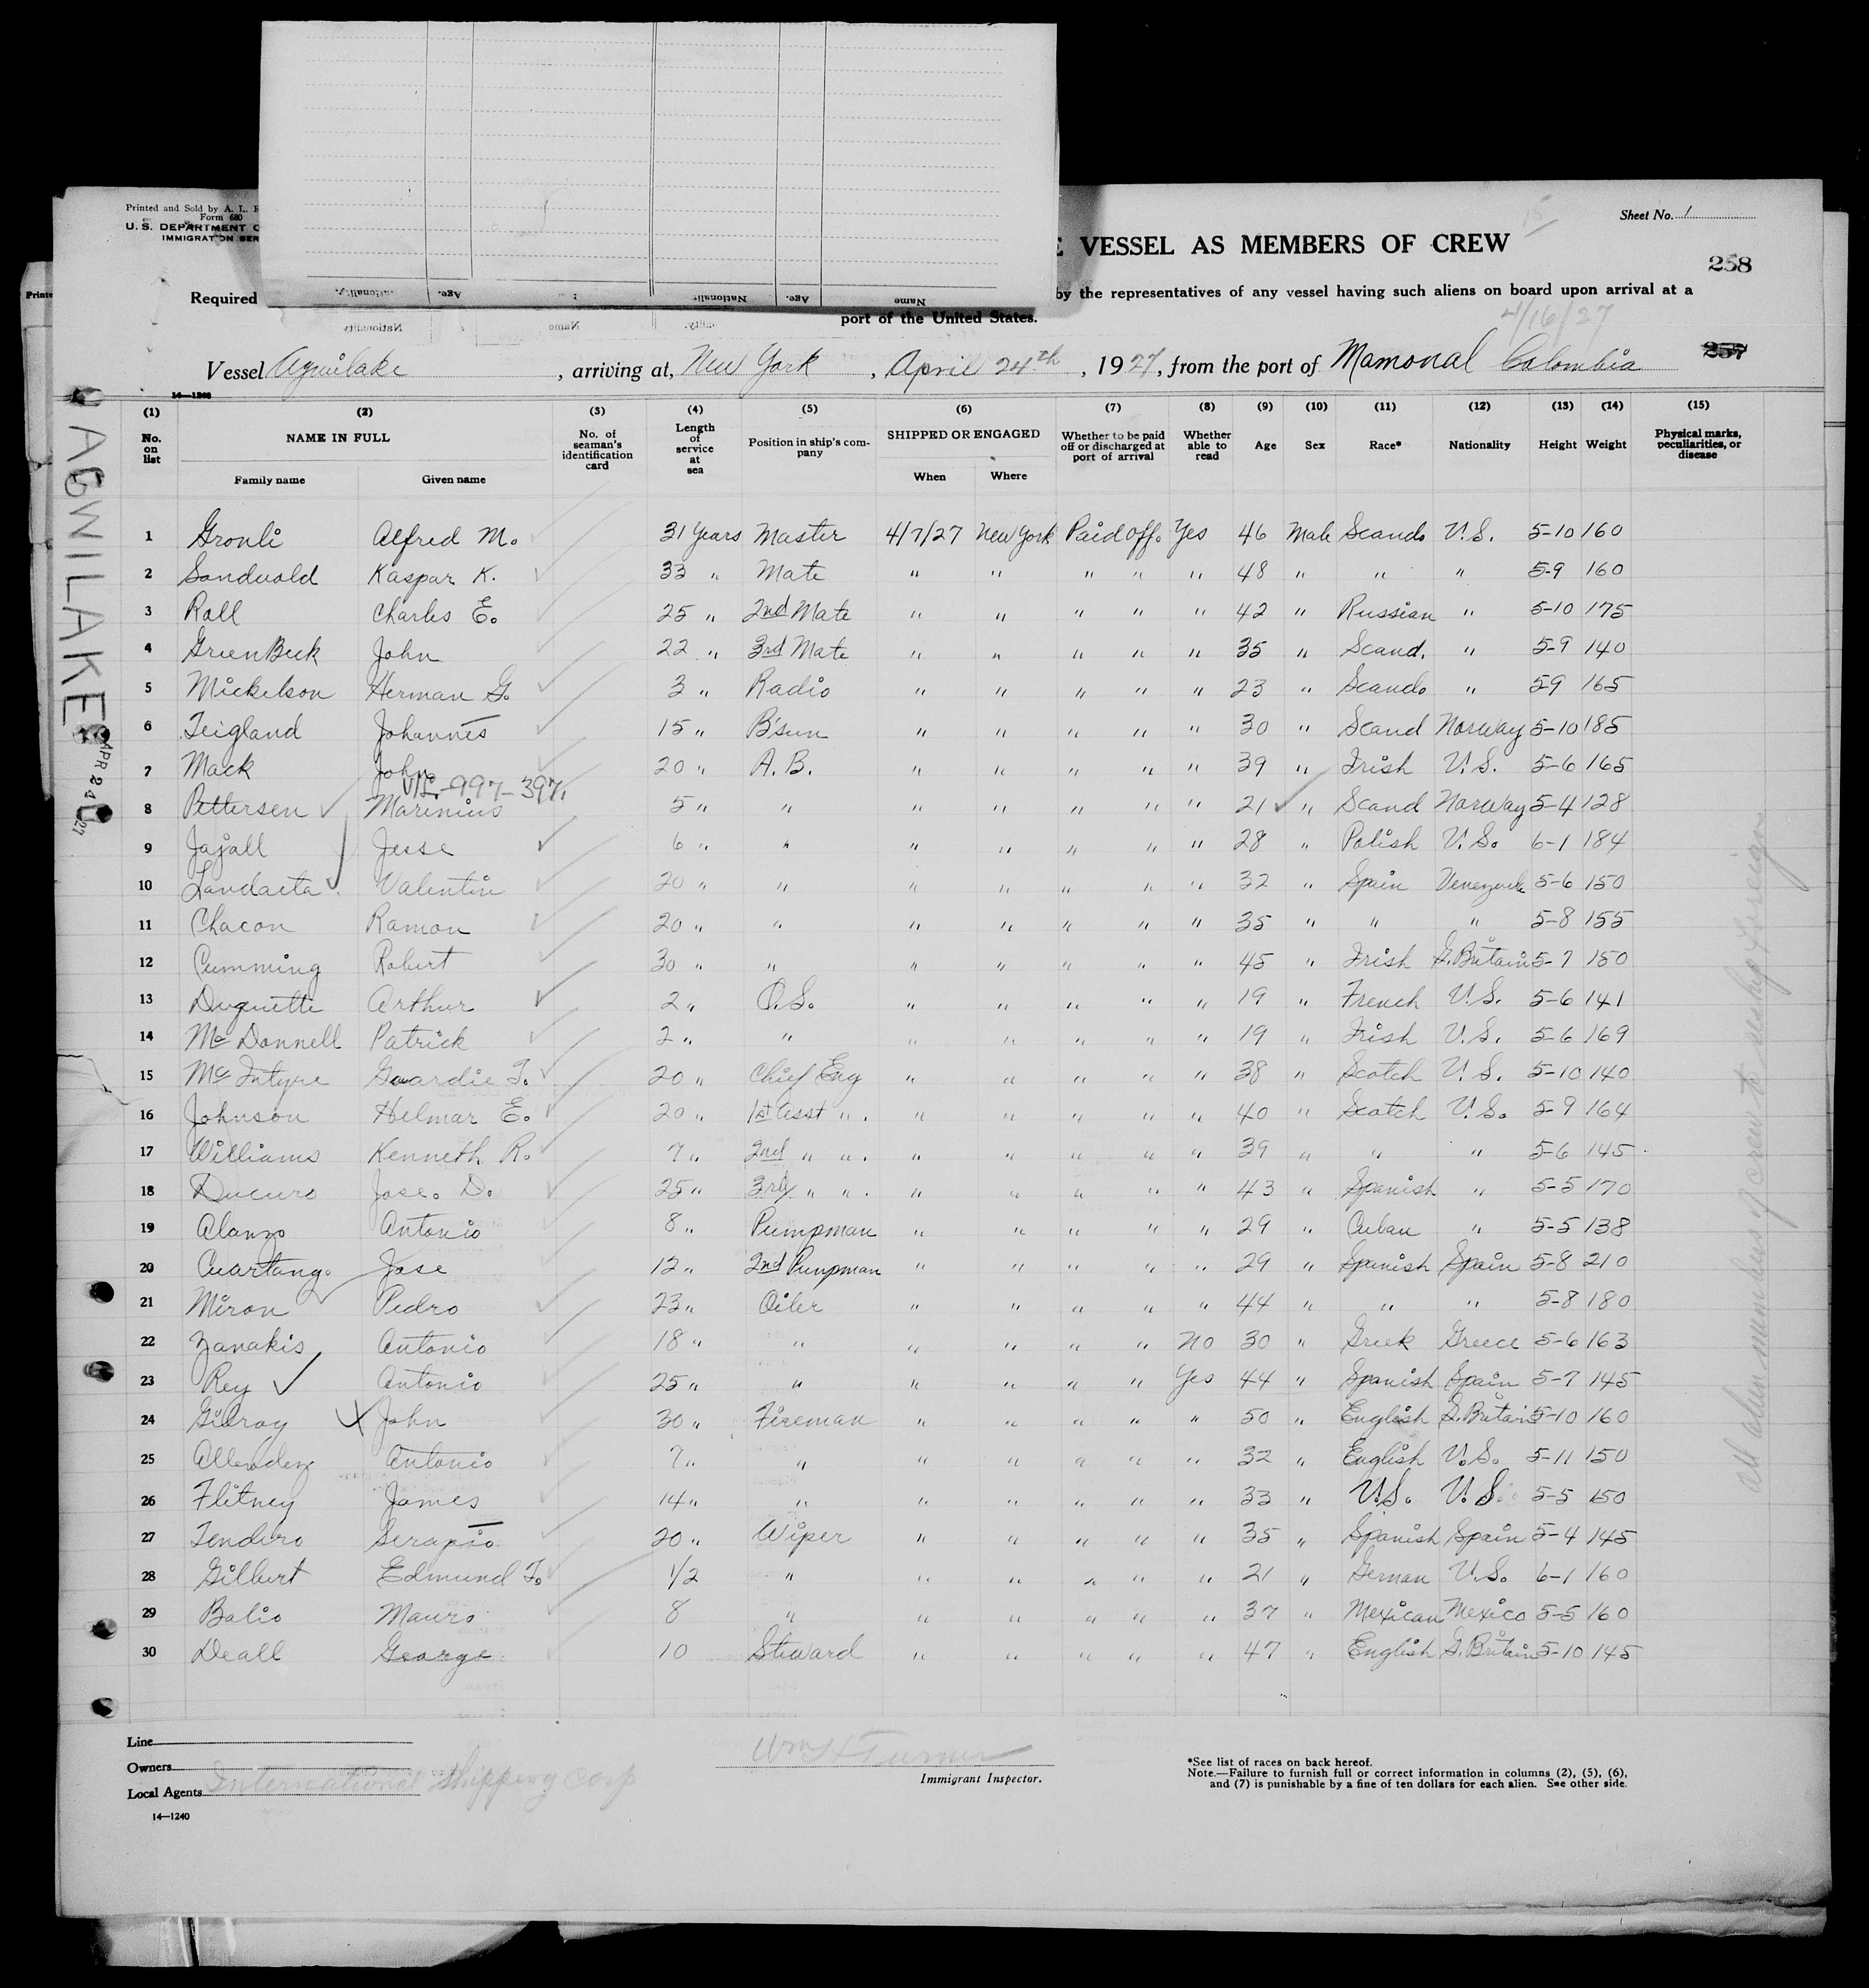 Printed and Sold by A. L.
Form 680
U. S. DEPARTMENT
IMMIGRATION SER
Sheet No. 1
VESSEL AS MEMBERS OF CREW
258
Required
by the representatives of any vessel having such aliens on board upon arrival at a
port of the United States.
4/16/27
257
Vessel Agwilake, arriving at, New York, April 24th, 1927, from the port of Mamonal Colombia
14—1240
(1) (2) (3) (4) (5) (6) (7) (8) (9) (10) (11) (12) (13) (14) (15)
No. on list NAME IN FULL No. of seaman's identification card Length of service at sea Position in ship's company SHIPPED OR ENGAGED Whether to be paid off or discharged at port of arrival Whether able to read Age Sex Race* Nationality Height Weight Physical marks, peculiarities, or disease
Family name Given name When Where
1 Gronli Alfred M. 31 Years Master 4/7/27 New York Paid off. Yes 46 Male Scand. U.S. 5-10 160
2 Sandvold Kaspar K. 33 " Mate " " " " " 48 " " " 5-9 160
3 Roll Charles E. 25 " 2nd Mate " " " " " 42 " Russian " 5-10 175
4 GreenBeck John 22 " 3rd Mate " " " " " 35 " Scand. " 5-9 140
5 Mickelson Herman G. 3 " Radio " " " " " 23 " Scand. " 5-9 165
6 Teigland Johannes 15 " B'sun " " " " " 30 " Scand Norway 5-10 185
7 Mack John 20 " A.B. " " " " " 39 " Irish U.S. 5-6 165
8 Pettersen Marinius 5 " " " " " " " 21 " Scand Norway 5-4 128
9 Jajall Jesse 6 " " " " " " " 28 " Polish U.S. 6-1 184
10 Landaeta Valentin 20 " " " " " " " 32 " Spain Venezuela 5-6 150
11 Chacon Ramon 20 " " " " " " " 35 " " " 5-8 155
12 Cumming Robert 30 " " " " " " " 45 " Irish G. Britain 5-7 150
13 Duquette Arthur 2 " O.S. " " " " " 19 " French U.S. 5-6 141
14 McDonnell Patrick 2 " " " " " " " 19 " Irish U.S. 5-6 169
15 McIntyre Guardie T. 20 " Chief Eng " " " " " 38 " Scotch U.S. 5-10 140
16 Johnson Helmar E. 20 " 1st Asst " . " " " " " 40 " Scotch U.S. 5-9 164
17 Williams Kenneth R. 7 " 2nd " " . " " " " " 39 " " " 5-6 145
18 Ducuro Jose. D. 25 " 3rd " " . " " " " " 43 " Spanish " 5-5 170
19 Alanzo Antonio 8 " Pumpman " " " " " 29 " Cuban " 5-5 138
20 Cuartango Jose 12 " 2nd Pumpman " " " " " 29 " Spanish Spain 5-8 210
21 Miron Pedro 23 " Oiler " " " " " 44 " " " 5-8 180
22 Zanakis Antonio 18 " " " " " " No 30 " Greek Greece 5-6 163
23 Rey Antonio 25 " " " " " " Yes 44 " Spanish Spain 5-7 145
24 Gilroy John 30 " Fireman " " " " " 50 " English G. Britain 5-10 160
25 Allendez Antonio 7 " " " " " " " 32 " English U.S. 5-11 150
26 Flitney James 14 " " " " " " " 33 " U.S. U.S. 5-5 150
27 Tendero Serapio 20 " Wiper " " " " " 35 " Spanish Spain 5-4 145
28 Gilbert Edmund F. 1/2 " " " " " " 21 " German U.S. 6-1 160
29 Balio Mauro 8 " " " " " " 37 " Mexican Mexico 5-5 160
30 Deall George 10 Steward " " " " " 47 " English G. Britain 5-10 145
AGWILAKE
APR 24 27
All alien members of crew to reship foreign
Line
Owners
Local Agents International Shipping Corp
Wm H Turner
Immigrant Inspector.
*See list of races on back hereof.
Note.—Failure to furnish full or correct information in columns (2), (5), (6),
and (7) is punishable by a fine of ten dollars for each alien. See other side.
14—1240